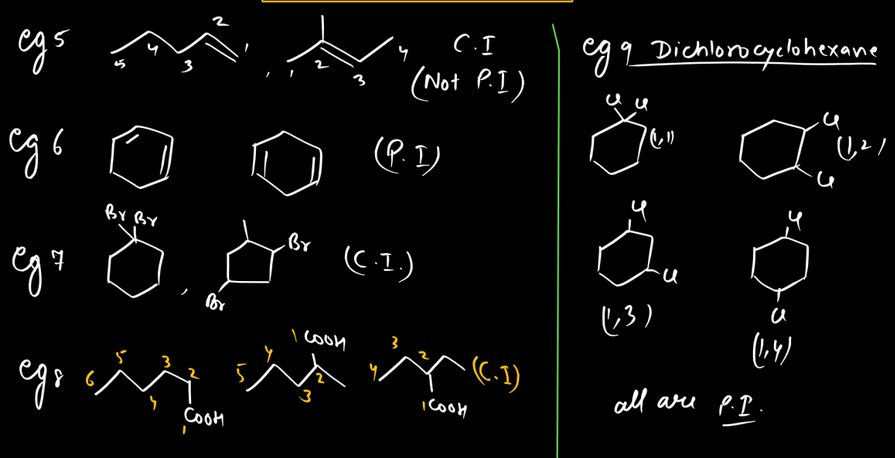 eg 5
2
1
4
5
3
,
1
2
3
4
C.I
(Not P.I)
eg 6
(P.I)
eg 7
Br Br
,
Br
Br
(C.I.)
eg 8
6
5
4
3
2
COOH
1
5
4
3
2
1 COOH
4
3
2
1 COOH
(C.I)
eg 9 Dichlorocyclohexane
Cl Cl
(1,1)
Cl
Cl
(1,2)
Cl
Cl
(1,3)
Cl
Cl
(1,4)
all are P.I.